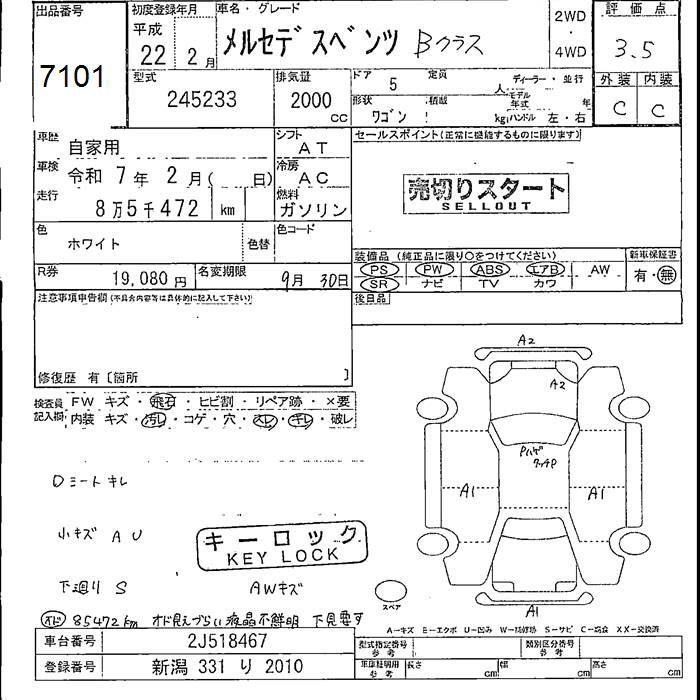 出品番号
7101
初度登録年月
平成
22年 2月
車名・グレード
メルセデスベンツ Bクラス
2WD
・
4WD
評価点
3.5
外装 内装
C C
型式
245233
排気量
2000 cc
ドア 5 定員 人
形状 ワゴン 積載 kg
ディーラー・並行
モデル年式 年
ハンドル 左・右
車歴 自家用
車検 令和 7年 2月( 日)
走行 8万5千472 km
シフト AT
冷房 AC
燃料 ガソリン
色 ホワイト 色替
色コード
R券 19,080円 名変期限 9月 30日
セールスポイント(正常に機能するものに限ります)
売切りスタート
SELLOUT
装備品 (純正品に限り○をつけてください)
PS PW ABS エアB AW
SR ナビ TV カワ
新車保証書
有・無
後日品
注意事項申告欄(不具合内容等は具体的に記入して下さい)
修復歴 有〔箇所 〕
検査員記入欄
FW キズ・飛石・ヒビ割・リペア跡・×要
内装 キズ・汚レ・コゲ・穴・スレ・キレ・破レ
Dシートキレ
小キズ AU
下廻り S
キーロック
KEY LOCK
AWキズ
オド 85472km オド見えづらい 液晶不鮮明 下見要す
A2
A2
A1
A1
A1
スペア
A-キズ E-エクボ U-凹み W-補修跡 S-サビ C-腐食 XX-交換済
車台番号 2J518467
登録番号 新潟 331 り 2010
型式指定番号 参考
類別区分番号 参考
車庫証明用 参考
長さ cm 幅 cm 高さ cm